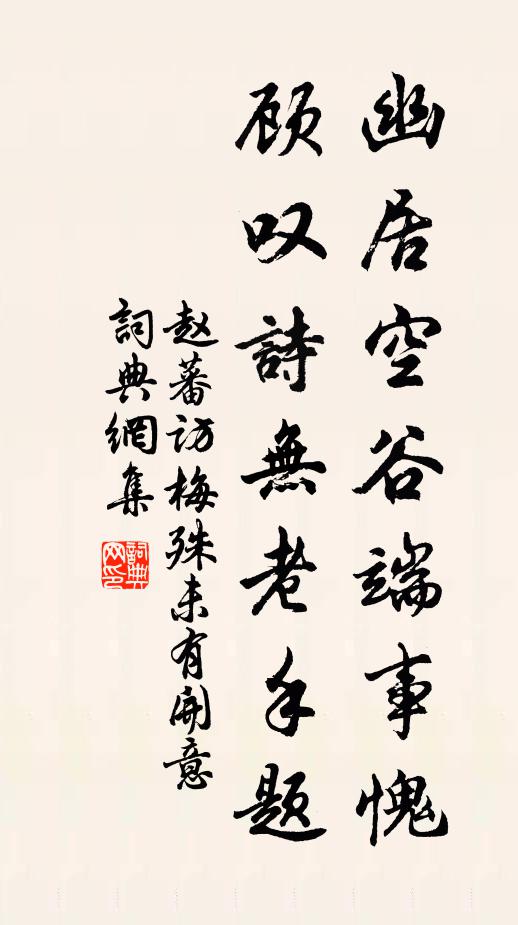 幽居空谷端事愧
顾叹詩無老手題
赵蕃访梅殊未有開意
詞典網集
詞典网印